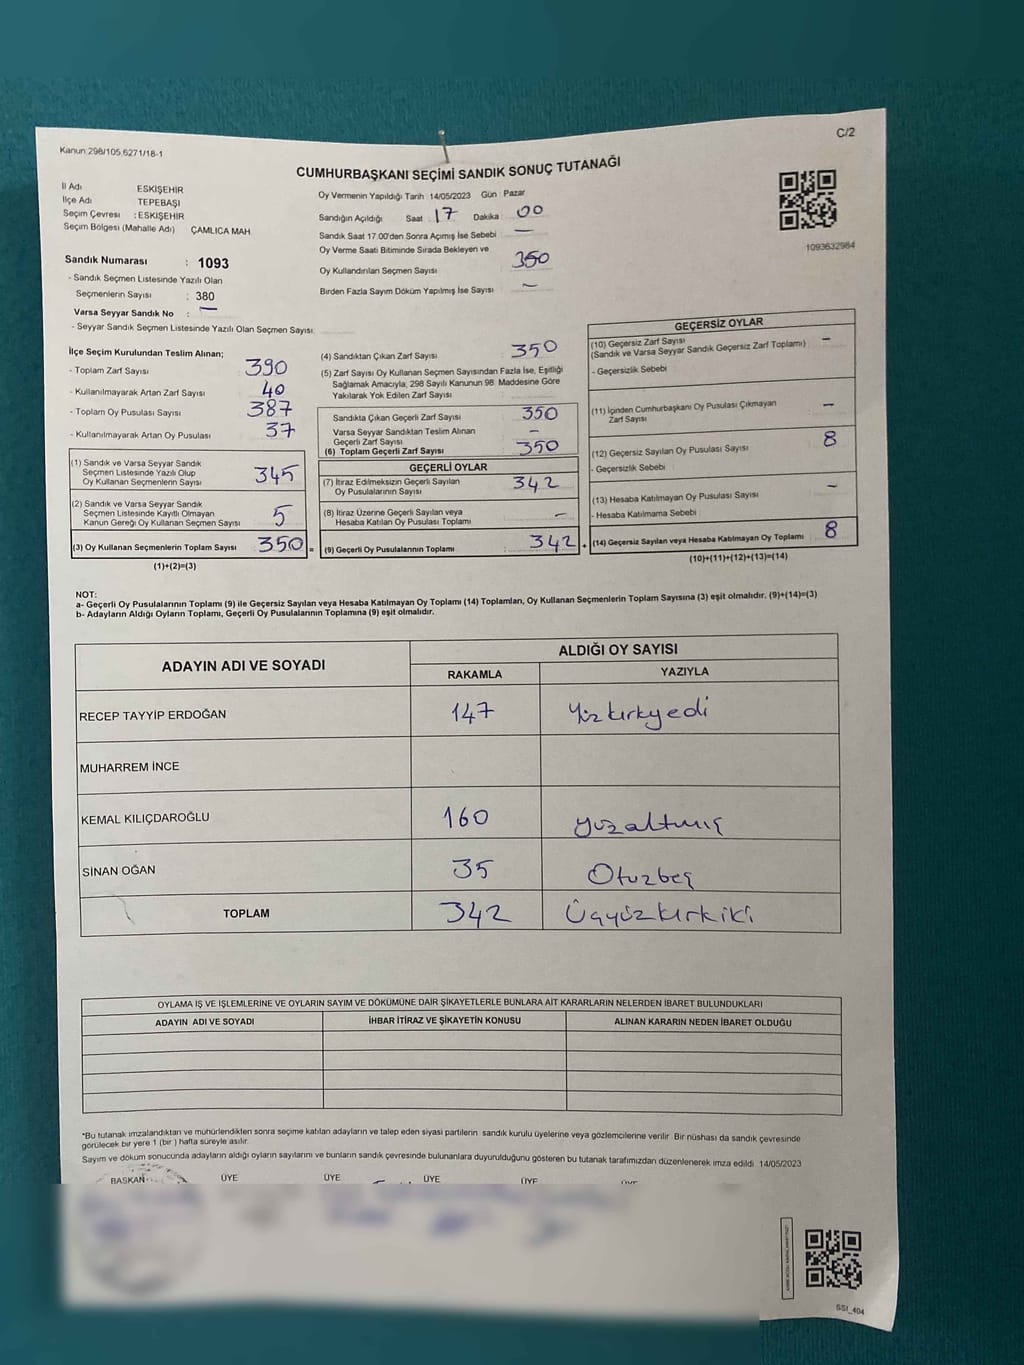 C/2
Kanun:298/105,6271/18-1
CUMHURBAŞKANI SEÇİMİ SANDIK SONUÇ TUTANAĞI
İl Adı ESKİŞEHİR
İlçe Adı TEPEBAŞI
Seçim Çevresi : ESKİŞEHİR
Seçim Bölgesi (Mahalle Adı) ÇAMLICA MAH.
Sandık Numarası : 1093
- Sandık Seçmen Listesinde Yazılı Olan
Seçmenlerin Sayısı : 380
Varsa Seyyar Sandık No : —
- Seyyar Sandık Seçmen Listesinde Yazılı Olan Seçmen Sayısı:
Oy Vermenin Yapıldığı Tarih 14/05/2023 Gün : Pazar
Sandığın Açıldığı Saat 17 Dakika 00
Sandık Saat 17.00'den Sonra Açımış İse Sebebi —
Oy Verme Saati Bitiminde Sırada Bekleyen ve
Oy Kullandırılan Seçmen Sayısı 350
Birden Fazla Sayım Döküm Yapılmış İse Sayısı —
1093632984
İlçe Seçim Kurulundan Teslim Alınan;
- Toplam Zarf Sayısı 390
- Kullanılmayarak Artan Zarf Sayısı 40
- Toplam Oy Pusulası Sayısı 387
- Kullanılmayarak Artan Oy Pusulası 37
(1) Sandık ve Varsa Seyyar Sandık
Seçmen Listesinde Yazılı Olup
Oy Kullanan Seçmenlerin Sayısı 345
(2) Sandık ve Varsa Seyyar Sandık
Seçmen Listesinde Kayıtlı Olmayan
Kanun Gereği Oy Kullanan Seçmen Sayısı 5
(3) Oy Kullanan Seçmenlerin Toplam Sayısı 350 =
(1)+(2)=(3)
(4) Sandıktan Çıkan Zarf Sayısı 350
(5) Zarf Sayısı Oy Kullanan Seçmen Sayısından Fazla İse, Eşitliği
Sağlamak Amacıyla, 298 Sayılı Kanunun 98. Maddesine Göre
Yakılarak Yok Edilen Zarf Sayısı
Sandıkta Çıkan Geçerli Zarf Sayısı 350
Varsa Seyyar Sandıktan Teslim Alınan
Geçerli Zarf Sayısı —
(6) Toplam Geçerli Zarf Sayısı 350
GEÇERLİ OYLAR
(7) İtiraz Edilmeksizin Geçerli Sayılan
Oy Pusulalarının Sayısı 342
(8) İtiraz Üzerine Geçerli Sayılan veya
Hesaba Katılan Oy Pusulası Toplamı —
(9) Geçerli Oy Pusulalarının Toplamı 342 +
GEÇERSİZ OYLAR
(10) Geçersiz Zarf Sayısı —
(Sandık ve Varsa Seyyar Sandık Geçersiz Zarf Toplamı)
- Geçersizlik Sebebi
(11) İçinden Cumhurbaşkanı Oy Pusulası Çıkmayan
Zarf Sayısı —
(12) Geçersiz Sayılan Oy Pusulası Sayısı 8
- Geçersizlik Sebebi
(13) Hesaba Katılmayan Oy Pusulası Sayısı —
- Hesaba Katılmama Sebebi
(14) Geçersiz Sayılan veya Hesaba Katılmayan Oy Toplamı 8
(10)+(11)+(12)+(13)=(14)
NOT:
a- Geçerli Oy Pusulalarının Toplamı (9) ile Geçersiz Sayılan veya Hesaba Katılmayan Oy Toplamı (14) Toplamları, Oy Kullanan Seçmenlerin Toplam Sayısına (3) eşit olmalıdır. (9)+(14)=(3)
b- Adayların Aldığı Oyların Toplamı, Geçerli Oy Pusulalarının Toplamına (9) eşit olmalıdır.
ADAYIN ADI VE SOYADI ALDIĞI OY SAYISI
RAKAMLA YAZIYLA
RECEP TAYYİP ERDOĞAN 147 Yüzkırkyedi
MUHARREM İNCE
KEMAL KILIÇDAROĞLU 160 yüzaltmış
SİNAN OĞAN 35 Otuzbeş
TOPLAM 342 Üçyüzkırkiki
OYLAMA İŞ VE İŞLEMLERİNE VE OYLARIN SAYIM VE DÖKÜMÜNE DAİR ŞİKAYETLERLE BUNLARA AİT KARARLARIN NELERDEN İBARET BULUNDUKLARI
ADAYIN ADI VE SOYADI İHBAR İTİRAZ VE ŞİKAYETİN KONUSU ALINAN KARARIN NEDEN İBARET OLDUĞU
*Bu tutanak imzalandıktan ve mühürlendikten sonra seçime katılan adayların ve talep eden siyasi partilerin sandık kurulu üyelerine veya gözlemcilerine verilir. Bir nüshası da sandık çevresinde
görülecek bir yere 1 (bir ) hafta süreyle asılır.
Sayım ve döküm sonucunda adayların aldığı oyların sayılarını ve bunların sandık çevresinde bulunanlara duyurulduğunu gösteren bu tutanak tarafımızdan düzenlenerek imza edildi 14/05/2023
BAŞKAN ÜYE ÜYE ÜYE ÜYE ÜYE
SSI_404